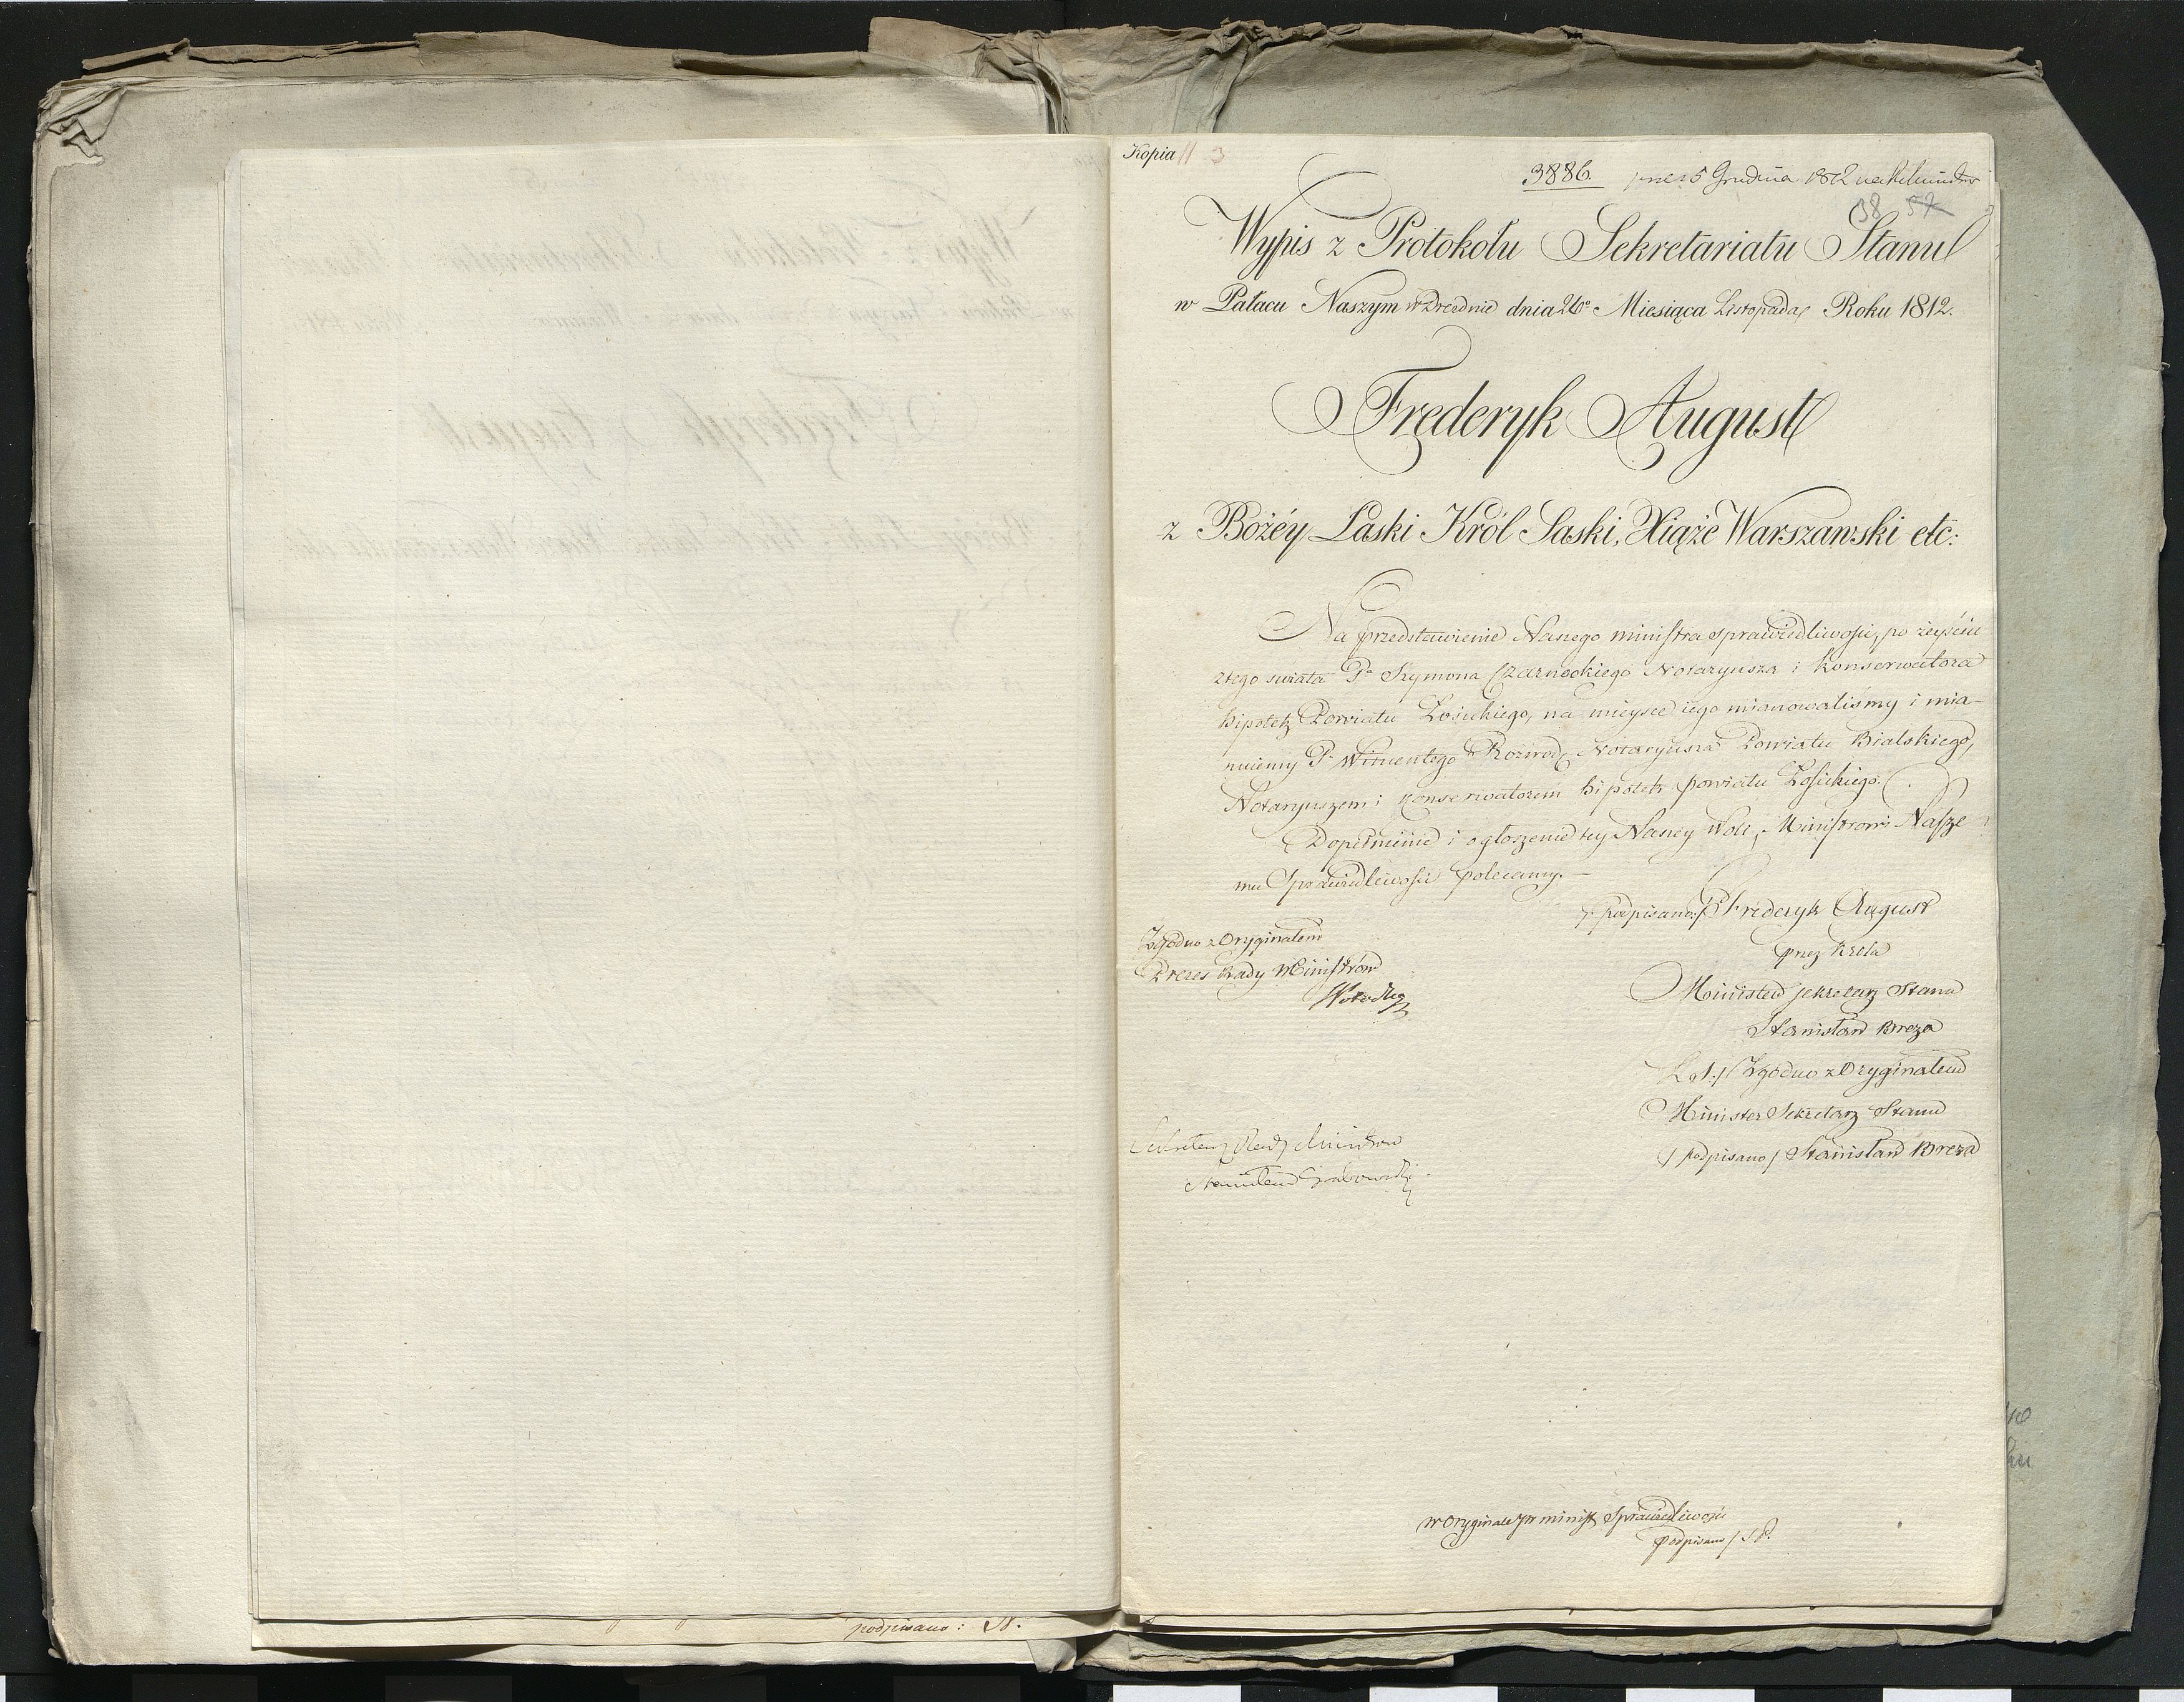 Kopia
3886. 5 Grudnia 1812
38 57
Wypis z Protokołu Sekretariatu Stanu
w Pałacu Naszym w Dreźnie dnia 26o Miesiąca Listopada Roku 1812.
Frederyk August
z Bożéy Łaski Król Saski, Xiąże Warszawski etc:
Na przedstawienie Naszego ministra sprawiedliwości, po zeyściu
z tego swiata Pa Szymona Czarneckiego Notaryusza i Konserwatora
hipotek Powiatu Łosickiego, na mieysce iego mianowaliśmy i mia-
nuiemy Pa Wincentego Rozwod Notaryusza Powiatu Bialskiego,
Notaryuszem i Konserwatorem hipotek powiatu Łosickiego.
Dopełnienie i ogłoszenie tey Naszey Woli, Ministrowi Nasze
mu Sprawiedliwości polecamy. —
/:podpisano:/ Frederyk August
przez Krola
Minister Sekretarz Stanu
Stanisław Breza
L.S./ Zgodno z Oryginałem
Minister Sekretarz Stanu
/podpisano/ Stanisław Breza
Zgodno z Oryginałem
Prezes Rady Ministrów
Sekretarz Rady Ministrow
Stanisław Grabowski
w Oryginale JW minist Sprawiedliwości
podpisano /
podpisano: